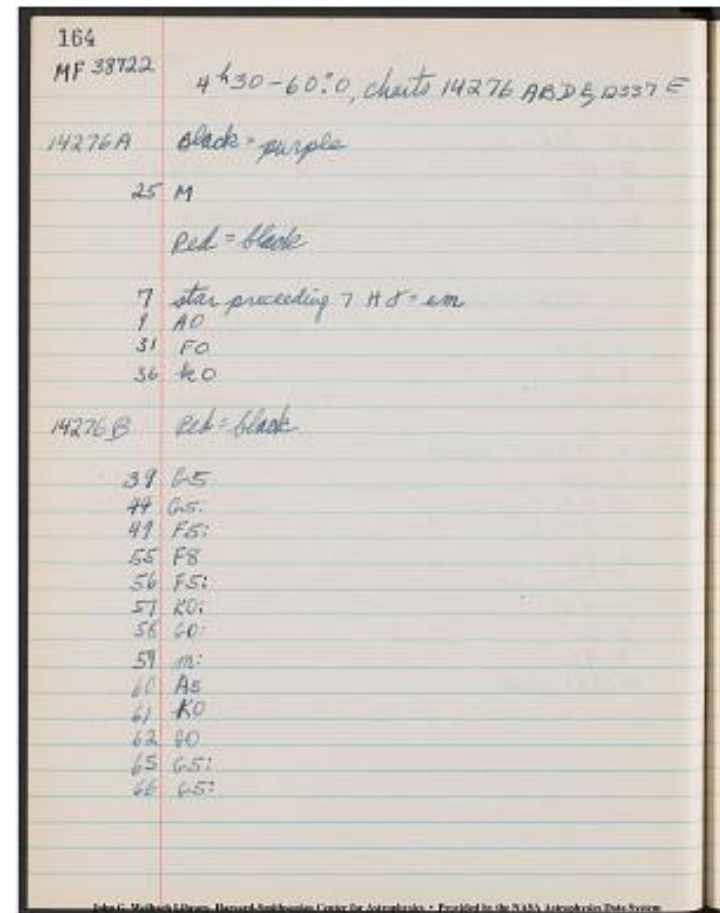 164
MF 38722
4 h 30 - 60.°0, charts 14276 ABD & 12337 E
14276A Black = purple
25 M
Red = black
7 star preceding 7 Hδ = em
9 A0
31 F0
36 K0
14276B Red = black
39 G5
44 G5:
49 F5:
55 F8
56 F5:
57 K0:
58 G0:
59 m:
60 A5
61 K0
62 G0
65 G5:
66 G5:
John G. Wolbach Library, Harvard-Smithsonian Center for Astrophysics • Provided by the NASA Astrophysics Data System